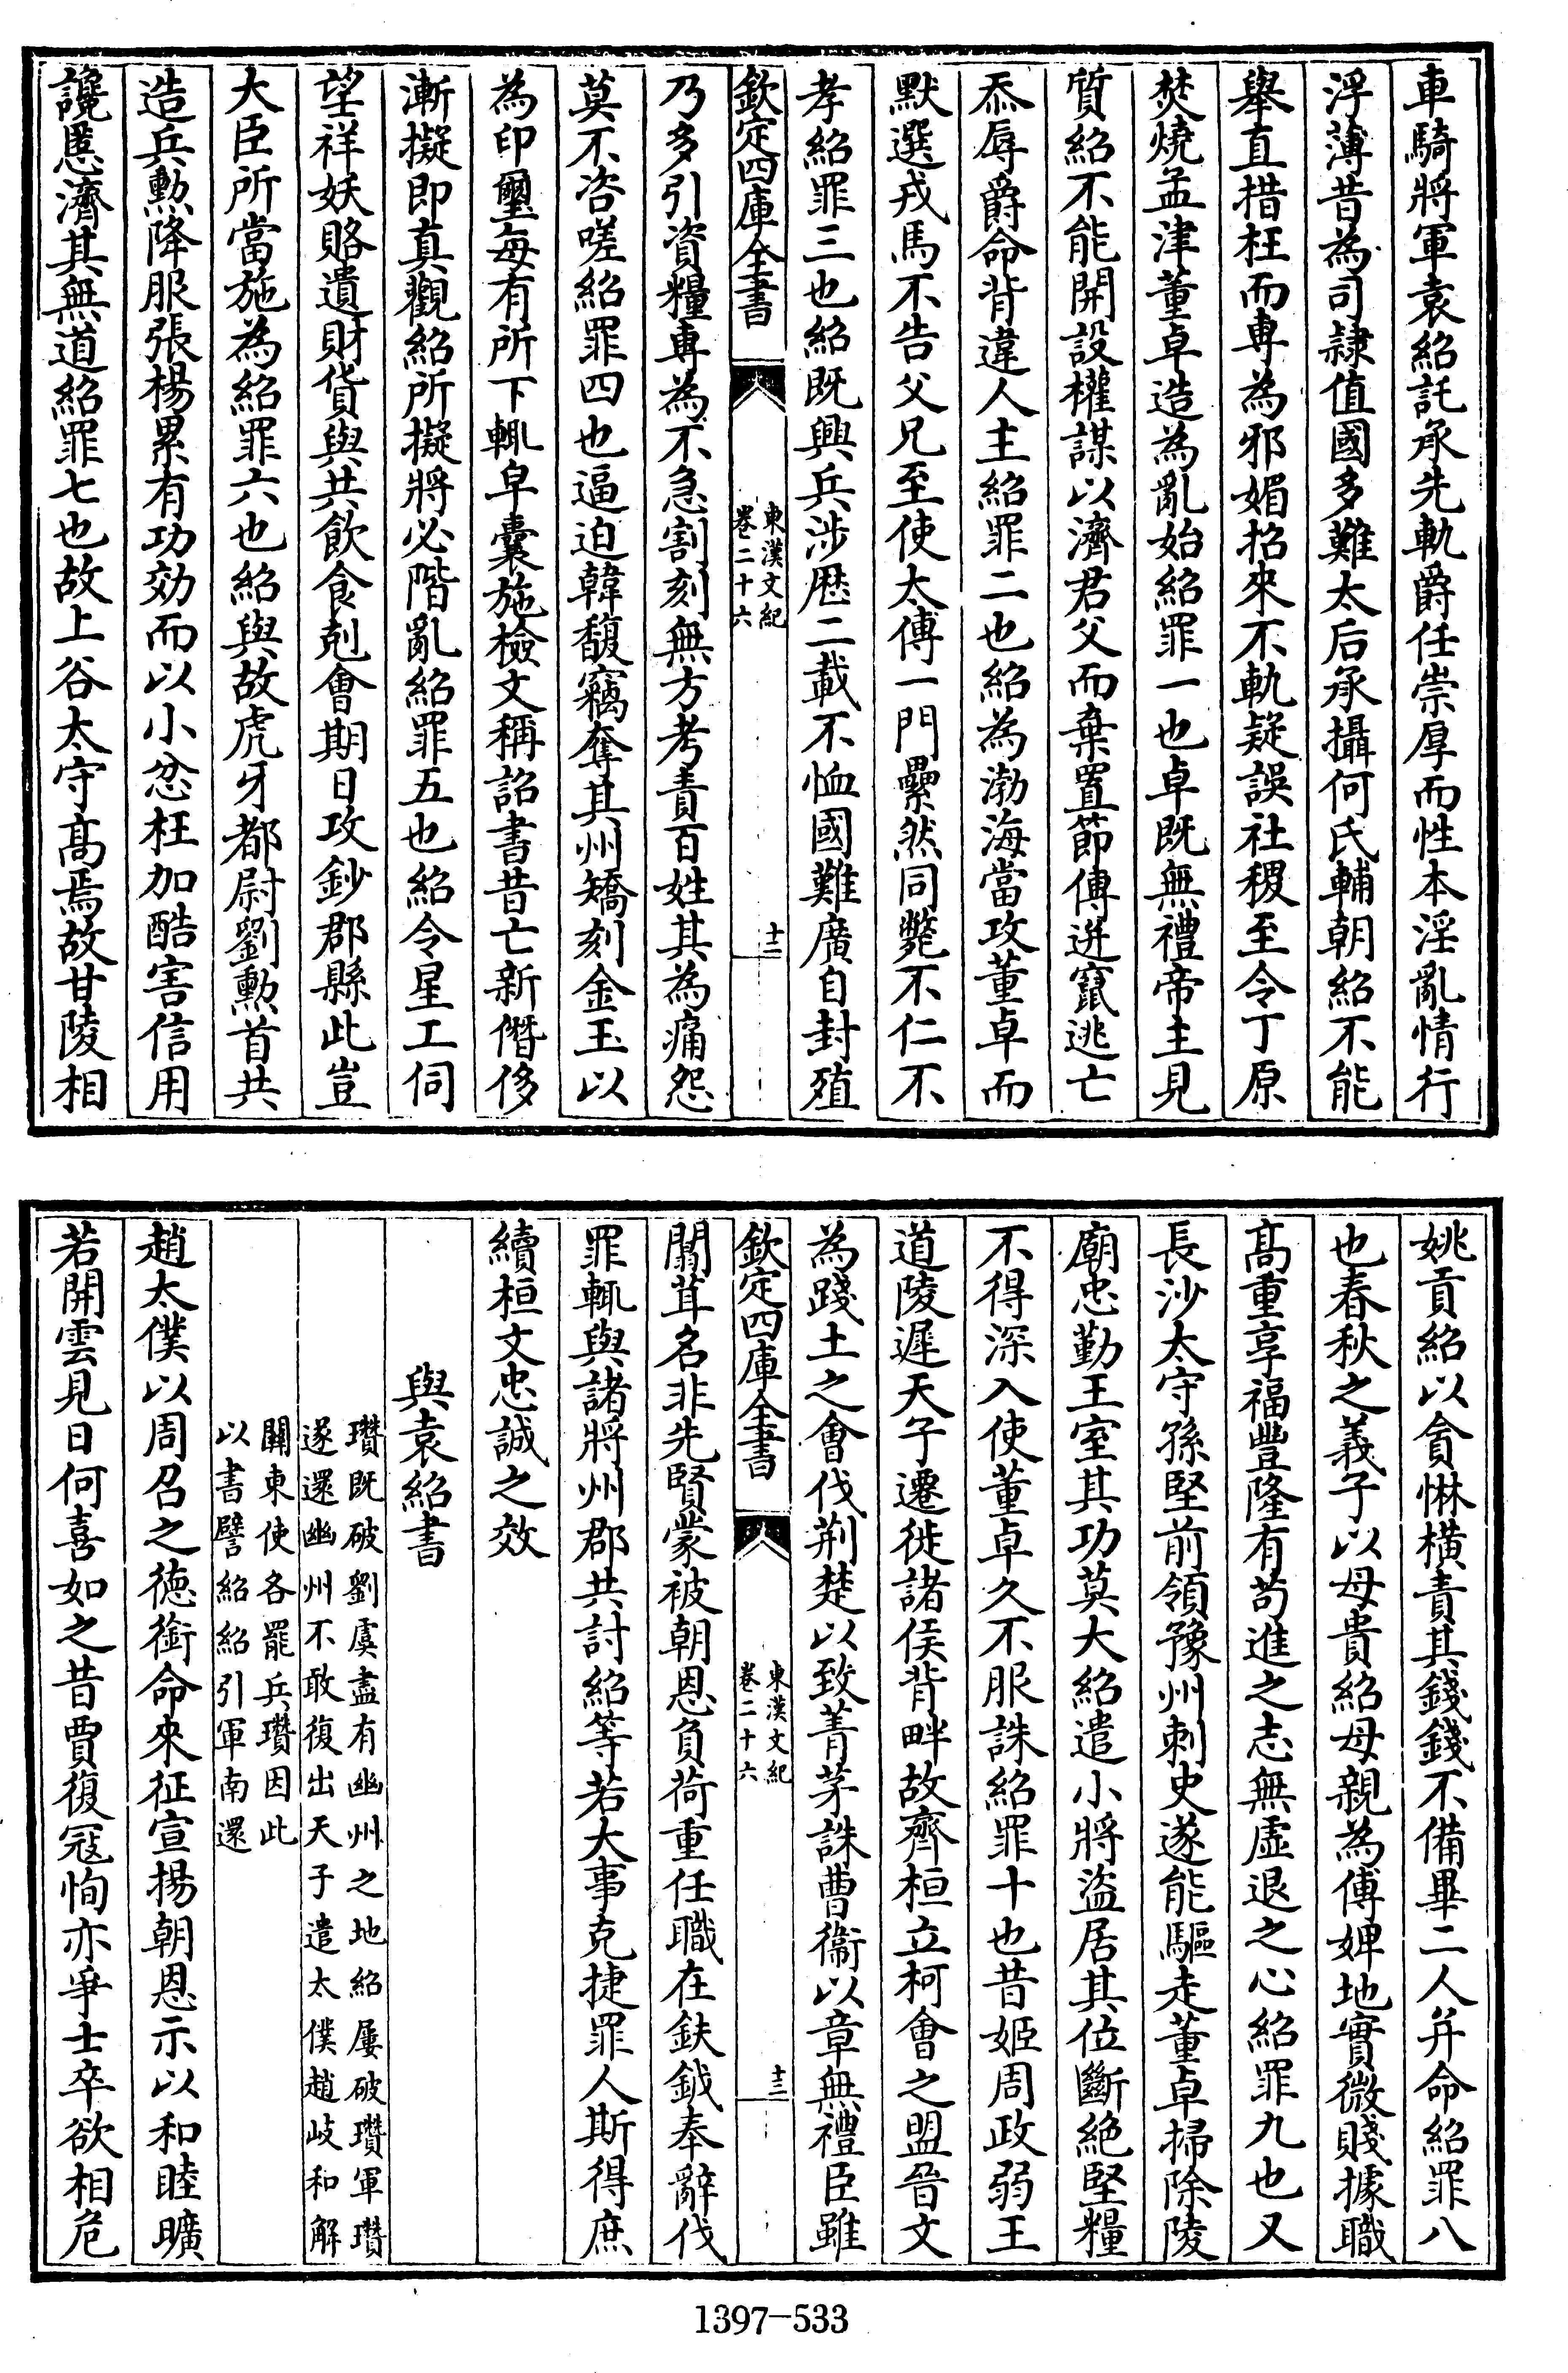 車騎將軍袁紹託承先軌爵任崇厚而性本淫亂情行
浮薄昔為司隷值國多難太后承攝何氏輔朝紹不能
舉直措枉而専為邪媚招來不軌疑誤社稷至令丁原
焚燒孟津董卓造為亂始紹罪一也卓既無禮帝主見
質紹不能開設權謀以濟君父而棄置節傳迸竄逃亡
忝辱爵命背違人主紹罪二也紹為渤海當攻董卓而
默選戎馬不告父兄至使太傅一門纍然同斃不仁不
孝紹罪三也紹既興兵涉厯二載不恤國難廣自封殖
欽定四庫全書
東漢文紀
卷二十六
十二
乃多引資糧専為不急割刻無方考責百姓其為痛怨
莫不咨嗟紹罪四也逼迫韓馥竊奪其州矯刻金玉以
為印璽每有所下輒皁囊施檢文稱詔書昔亡新僭侈
漸擬即真觀紹所擬將必階亂紹罪五也紹令星工伺
望祥妖賂遺財貨與共飲食剋會期日攻鈔郡縣此豈
大臣所當施為紹罪六也紹與故虎牙都尉劉勲首共
造兵勲降服張楊累有功効而以小忿枉加酷害信用
讒慝濟其無道紹罪七也故上谷太守髙焉故甘陵相
姚貢紹以貪惏橫責其錢錢不備畢二人并命紹罪八
也春秋之義子以母貴紹母親為傅婢地實微賤據職
髙重享福豐隆有茍進之志無虛退之心紹罪九也又
長沙太守孫堅前領豫州刺史遂能驅走董卓掃除陵
廟忠勤王室其功莫大紹遣小將盜居其位斷絶堅糧
不得深入使董卓久不服誅紹罪十也昔姬周政弱王
道陵遲天子遷徙諸侯背畔故齊桓立柯會之盟晉文
為踐土之會伐荆楚以致菁茅誅曹衞以章無禮臣雖
欽定四庫全書
東漢文紀
卷二十六
十三
闒茸名非先賢蒙被朝恩負荷重任職在鈇鉞奉辭伐
罪輒與諸將州郡共討紹等若大事克捷罪人斯得庶
續桓文忠誠之效
與袁紹書
瓚既破劉虞盡有幽州之地紹屢破瓚軍瓚
遂還幽州不敢復出天子遣太僕趙岐和解
關東使各罷兵瓚因此
以書譬紹紹引軍南還
趙太僕以周召之徳銜命來征宣揚朝恩示以和睦曠
若開雲見日何喜如之昔賈復冦恂亦爭士卒欲相危
1397-533